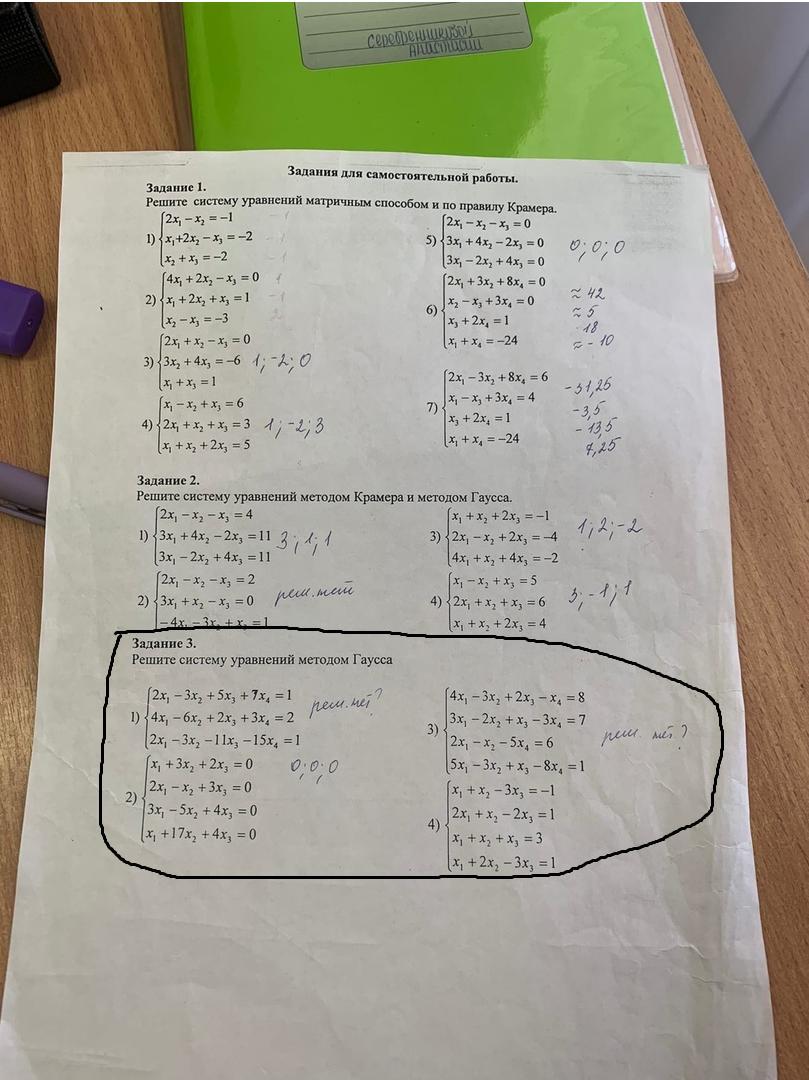 СЕРЕБРЕННИКОВОЙ
АНАСТАСИИ
Задания для самостоятельной работы.
Задание 1.
Решите систему уравнений матричным способом и по правилу Крамера.
1) 2x₁ − x₂ = −1 −1
x₁+2x₂ − x₃ = −2 −1
x₂ + x₃ = −2 −1
2) 4x₁ + 2x₂ − x₃ = 0 1
x₁ + 2x₂ + x₃ = 1 −1
x₂ − x₃ = −3 2
3) 2x₁ + x₂ − x₃ = 0
3x₂ + 4x₃ = −6 1; −2; 0
x₁ + x₃ = 1
4) x₁ − x₂ + x₃ = 6
2x₁ + x₂ + x₃ = 3 1; −2; 3
x₁ + x₂ + 2x₃ = 5
5) 2x₁ − x₂ − x₃ = 0
3x₁ + 4x₂ − 2x₃ = 0 0; 0; 0
3x₁ − 2x₂ + 4x₃ = 0
6) 2x₁ + 3x₂ + 8x₄ = 0 ≈ 42
x₂ − x₃ + 3x₄ = 0 ≈ 5
x₃ + 2x₄ = 1 18
x₁ + x₄ = −24 ≈ −10
7) 2x₁ − 3x₂ + 8x₄ = 6 −31,25
x₁ − x₃ + 3x₄ = 4 −3,5
x₃ + 2x₄ = 1 −13,5
x₁ + x₄ = −24 7,25
Задание 2.
Решите систему уравнений методом Крамера и методом Гаусса.
1) 2x₁ − x₂ − x₃ = 4
3x₁ + 4x₂ − 2x₃ = 11 3; 1; 1
3x₁ − 2x₂ + 4x₃ = 11
2) 2x₁ − x₂ − x₃ = 2
3x₁ + x₂ − x₃ = 0 реш. нет
−4x₁ − 3x₂ + x₃ = 1
3) x₁ + x₂ + 2x₃ = −1
2x₁ − x₂ + 2x₃ = −4 1; 2; −2
4x₁ + x₂ + 4x₃ = −2
4) x₁ − x₂ + x₃ = 5
2x₁ + x₂ + x₃ = 6 3; −1; 1
x₁ + x₂ + 2x₃ = 4
Задание 3.
Решите систему уравнений методом Гаусса
1) 2x₁ − 3x₂ + 5x₃ + 7x₄ = 1
4x₁ − 6x₂ + 2x₃ + 3x₄ = 2 реш. нет?
2x₁ − 3x₂ − 11x₃ − 15x₄ = 1
2) x₁ + 3x₂ + 2x₃ = 0 0; 0; 0
2x₁ − x₂ + 3x₃ = 0
3x₁ − 5x₂ + 4x₃ = 0
x₁ + 17x₂ + 4x₃ = 0
3) 4x₁ − 3x₂ + 2x₃ − x₄ = 8
3x₁ − 2x₂ + x₃ − 3x₄ = 7
2x₁ − x₂ − 5x₄ = 6 реш. нет?
5x₁ − 3x₂ + x₃ − 8x₄ = 1
4) x₁ + x₂ − 3x₃ = −1
2x₁ + x₂ − 2x₃ = 1
x₁ + x₂ + x₃ = 3
x₁ + 2x₂ − 3x₃ = 1